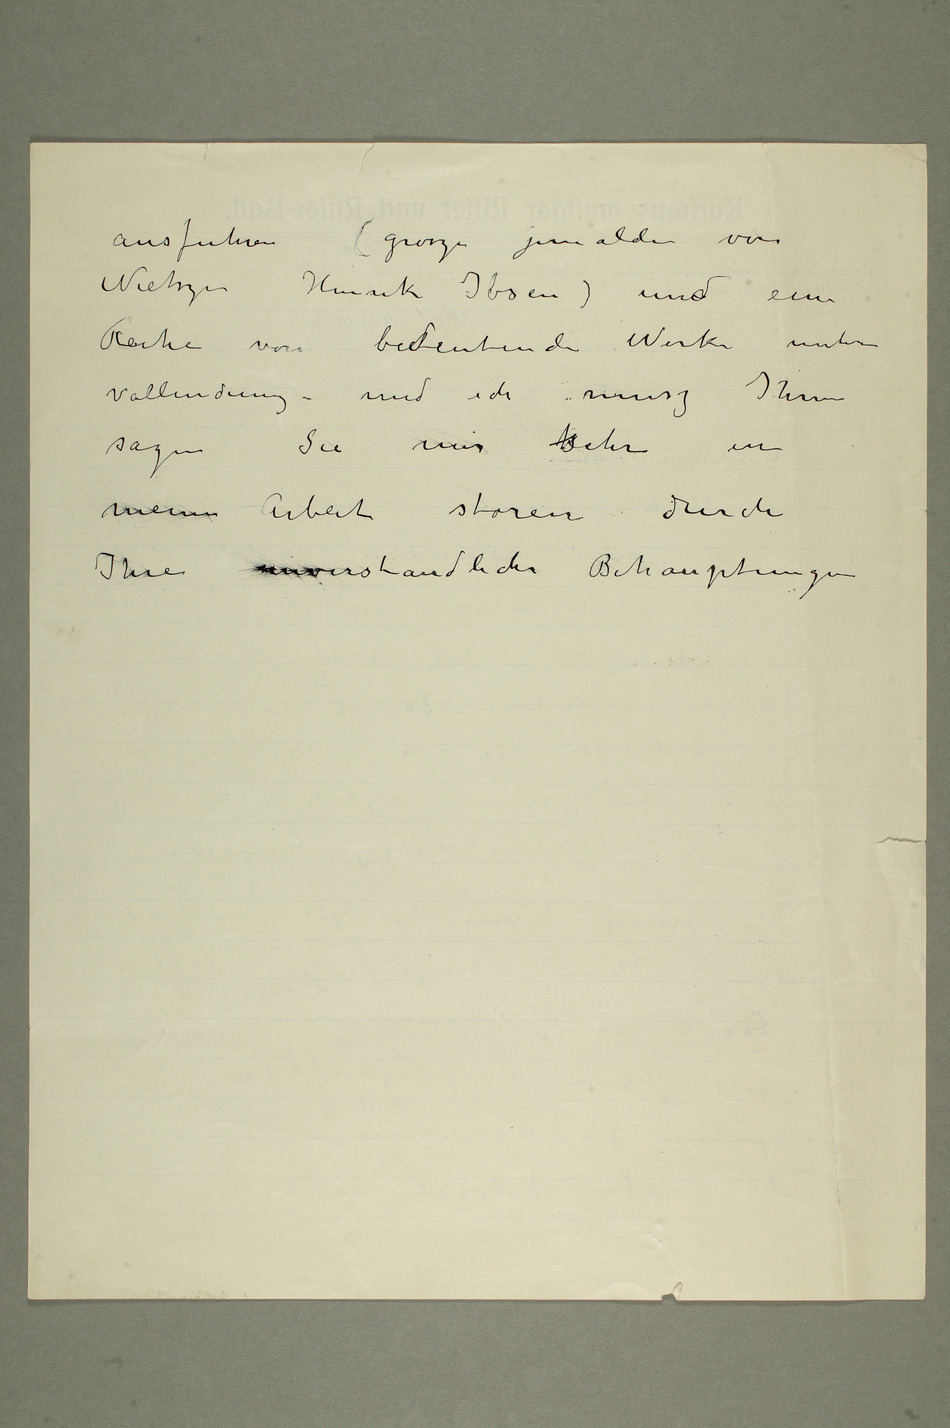 ausfuhren (grosze gemalde von
Nietsze Henrik Ibsen) und eine
Reihe von bedeutende Werke unter
vollendung – und ich musz Ihnen
sagen Sie mir sehr in
meine Arbeit storen durch
Ihre unverstandliche Behauptungen